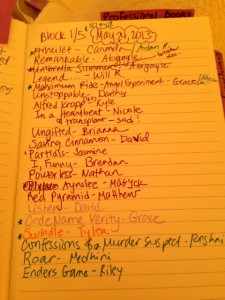 Professional Books
Block 1/5 {May 24, 2013}
Amulet - Carmen / Aidan
Remarkable - Abgayle
Umbrella Summer - Abgayle
Legend... - Will R.
Maximum Ride - Angel Experiment - Grace
Unstoppable - Danny
Alfred Kropp - Kyle
In a Heartbeat - Nicole
transplant - sad!
Ungifted - Brianna
Saving Cinnamon - David
Partials - Jasmine
I, Funny - Brendan
Powerless - Nathan
Aynslee - Magyck
Red Pyramid - Matthew
Listen - David
Code Name Verity - Grace
Swindle - Tyler
Confessions of a Murder Suspect -
Roar - Medhini
Enders Game - Riley